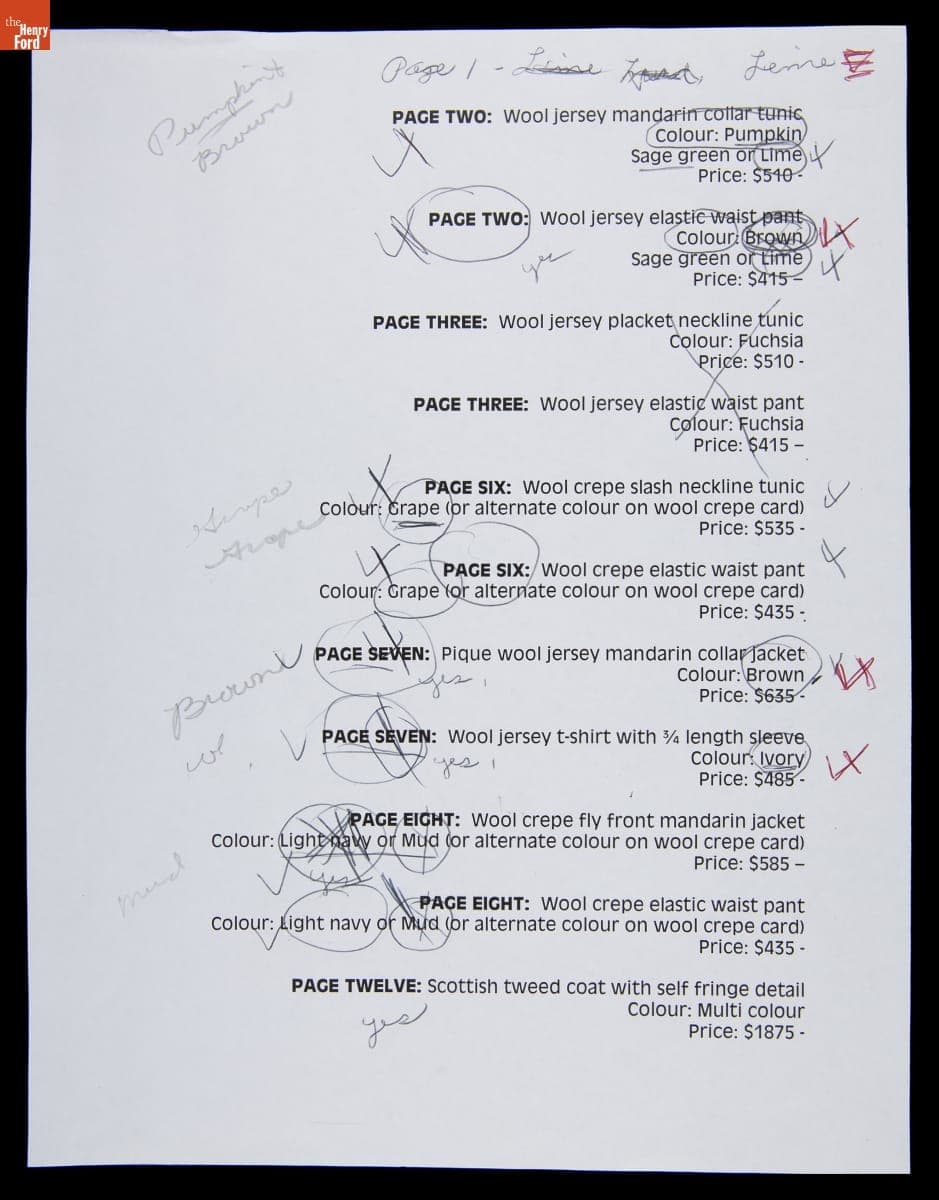 the
Henry
Ford
Page 1 - Lime Lime
Pumpkin
Brown
PAGE TWO: Wool jersey mandarin collar tunic
Colour: Pumpkin
Sage green or Lime
Price: $510 -
PAGE TWO: Wool jersey elastic waist pant
Colour: Brown
Sage green or Lime
yes
Price: $415 –
PAGE THREE: Wool jersey placket neckline tunic
Colour: Fuchsia
Price: $510 -
PAGE THREE: Wool jersey elastic waist pant
Colour: Fuchsia
Price: $415 –
PAGE SIX: Wool crepe slash neckline tunic
Grape
Colour: Grape (or alternate colour on wool crepe card)
Price: $535 -
Grape
PAGE SIX: Wool crepe elastic waist pant
Colour: Grape (or alternate colour on wool crepe card)
Price: $435 -
PAGE SEVEN: Pique wool jersey mandarin collar jacket
Brown
Colour: Brown
yes
Price: $635 -
PAGE SEVEN: Wool jersey t-shirt with ¾ length sleeve
Colour: Ivory
yes
Price: $485 -
PAGE EIGHT: Wool crepe fly front mandarin jacket
Colour: Light navy or Mud (or alternate colour on wool crepe card)
Price: $585 –
mud
yes
PAGE EIGHT: Wool crepe elastic waist pant
Colour: Light navy or Mud (or alternate colour on wool crepe card)
Price: $435 -
PAGE TWELVE: Scottish tweed coat with self fringe detail
Colour: Multi colour
yes
Price: $1875 -